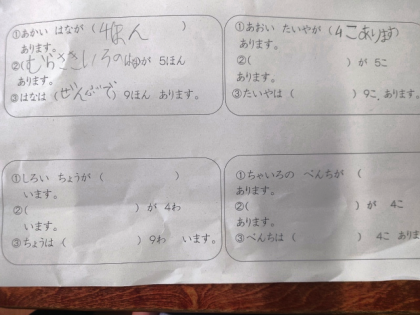 ①あかい はなが (4ほん)
あります。
②(むらさきいろのはな)が 5ほん
あります。
③はなは (ぜんぶで) 9ほん あります。
①あおい たいやが (4こあります)
あります。
②( )が 5こ
あります。
③たいやは ( )9こ あります。
①しろい ちょうが ( )
います。
②( )が 4わ
います。
③ちょうは ( ) 9わ います。
①ちゃいろの べんちが (
あります。
②( )が 4こ
あります。
③べんちは ( ) 4こ あります